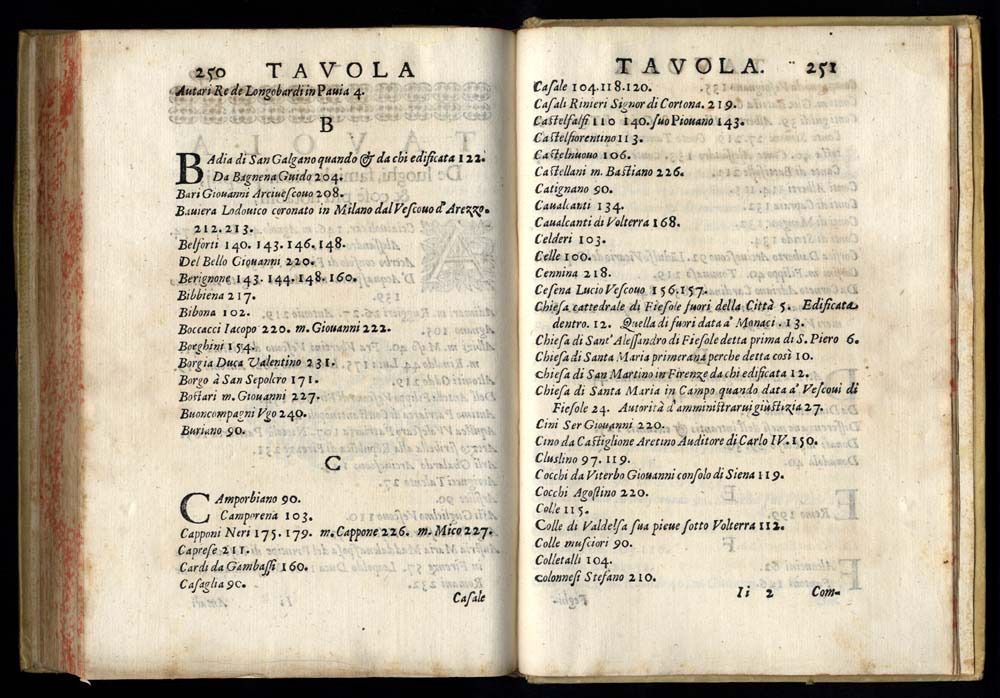 250 TAVOLA
Autari Re de Longobardi in Pavia 4.
B
BAdia di San Galgano quando & da chi edificata 122.
Da Bagnena Guido 204.
Bari Giovanni Arciuescouo 208.
Bauiera Lodouico coronato in Milano dal Vescouo d'Arezzo.
212.213.
Belforti 140. 143. 146. 148.
Del Bello Giouanni 220.
Berignone 143. 144. 148. 160.
Bibbiena 217.
Bibona 102.
Boccacci Iacopo 220. m. Giouanni 222.
Borghini 154.
Borgia Duca Valentino 231.
Borgo à San Sepolcro 171.
Bostari m. Giouanni 227.
Buoncompagni Vgo 240.
Buriano 90.
C
CAmporbiano 90.
Camporena 103.
Capponi Neri 175. 179. m. Cappone 226. m. Mico 227.
Caprese 211.
Cardi da Gambassi 160.
Casaglia 90.
Casale
TAVOLA. 251
Casale 104.118.120.
Casali Rinieri Signor di Cortona. 219.
Castelfalfi 110 140. suo Piouano 143.
Castelfiorentino 113.
Castelnuouo 106.
Castellani m. Bastiano 226.
Catignano 90.
Caualcanti 134.
Caualcanti di Volterra 168.
Celderi 103.
Celle 100.
Cennina 218.
Cesena Lucio Vescouo 156.157.
Chiesa cattedrale di Fiesole fuori della Città 5. Edificata
dentro. 12. Quella di fuori data a' Monaci. 13.
Chiesa di Sant' Alessandro di Fiesole detta prima di S. Piero 6.
Chiesa di Santa Maria primerana perche detta così 10.
Chiesa di San Martino in Firenze da chi edificata 12.
Chiesa di Santa Maria in Campo quando data a' Vescoui di
Fiesole 24. Autorità d'amministrarui giustizia 27.
Cini Ser Giouanni 220.
Cino da Castiglione Aretino Auditore di Carlo IV. 150.
Cluslino 97. 119.
Cocchi da Viterbo Giouanni consolo di Siena 119.
Cocchi Agostino 220.
Colle 115.
Colle di Valdelsa sua pieue sotto Volterra 112.
Colle musciori 90.
Colletalli 104.
Colonnesi Stefano 210.
Ii 2 Com-